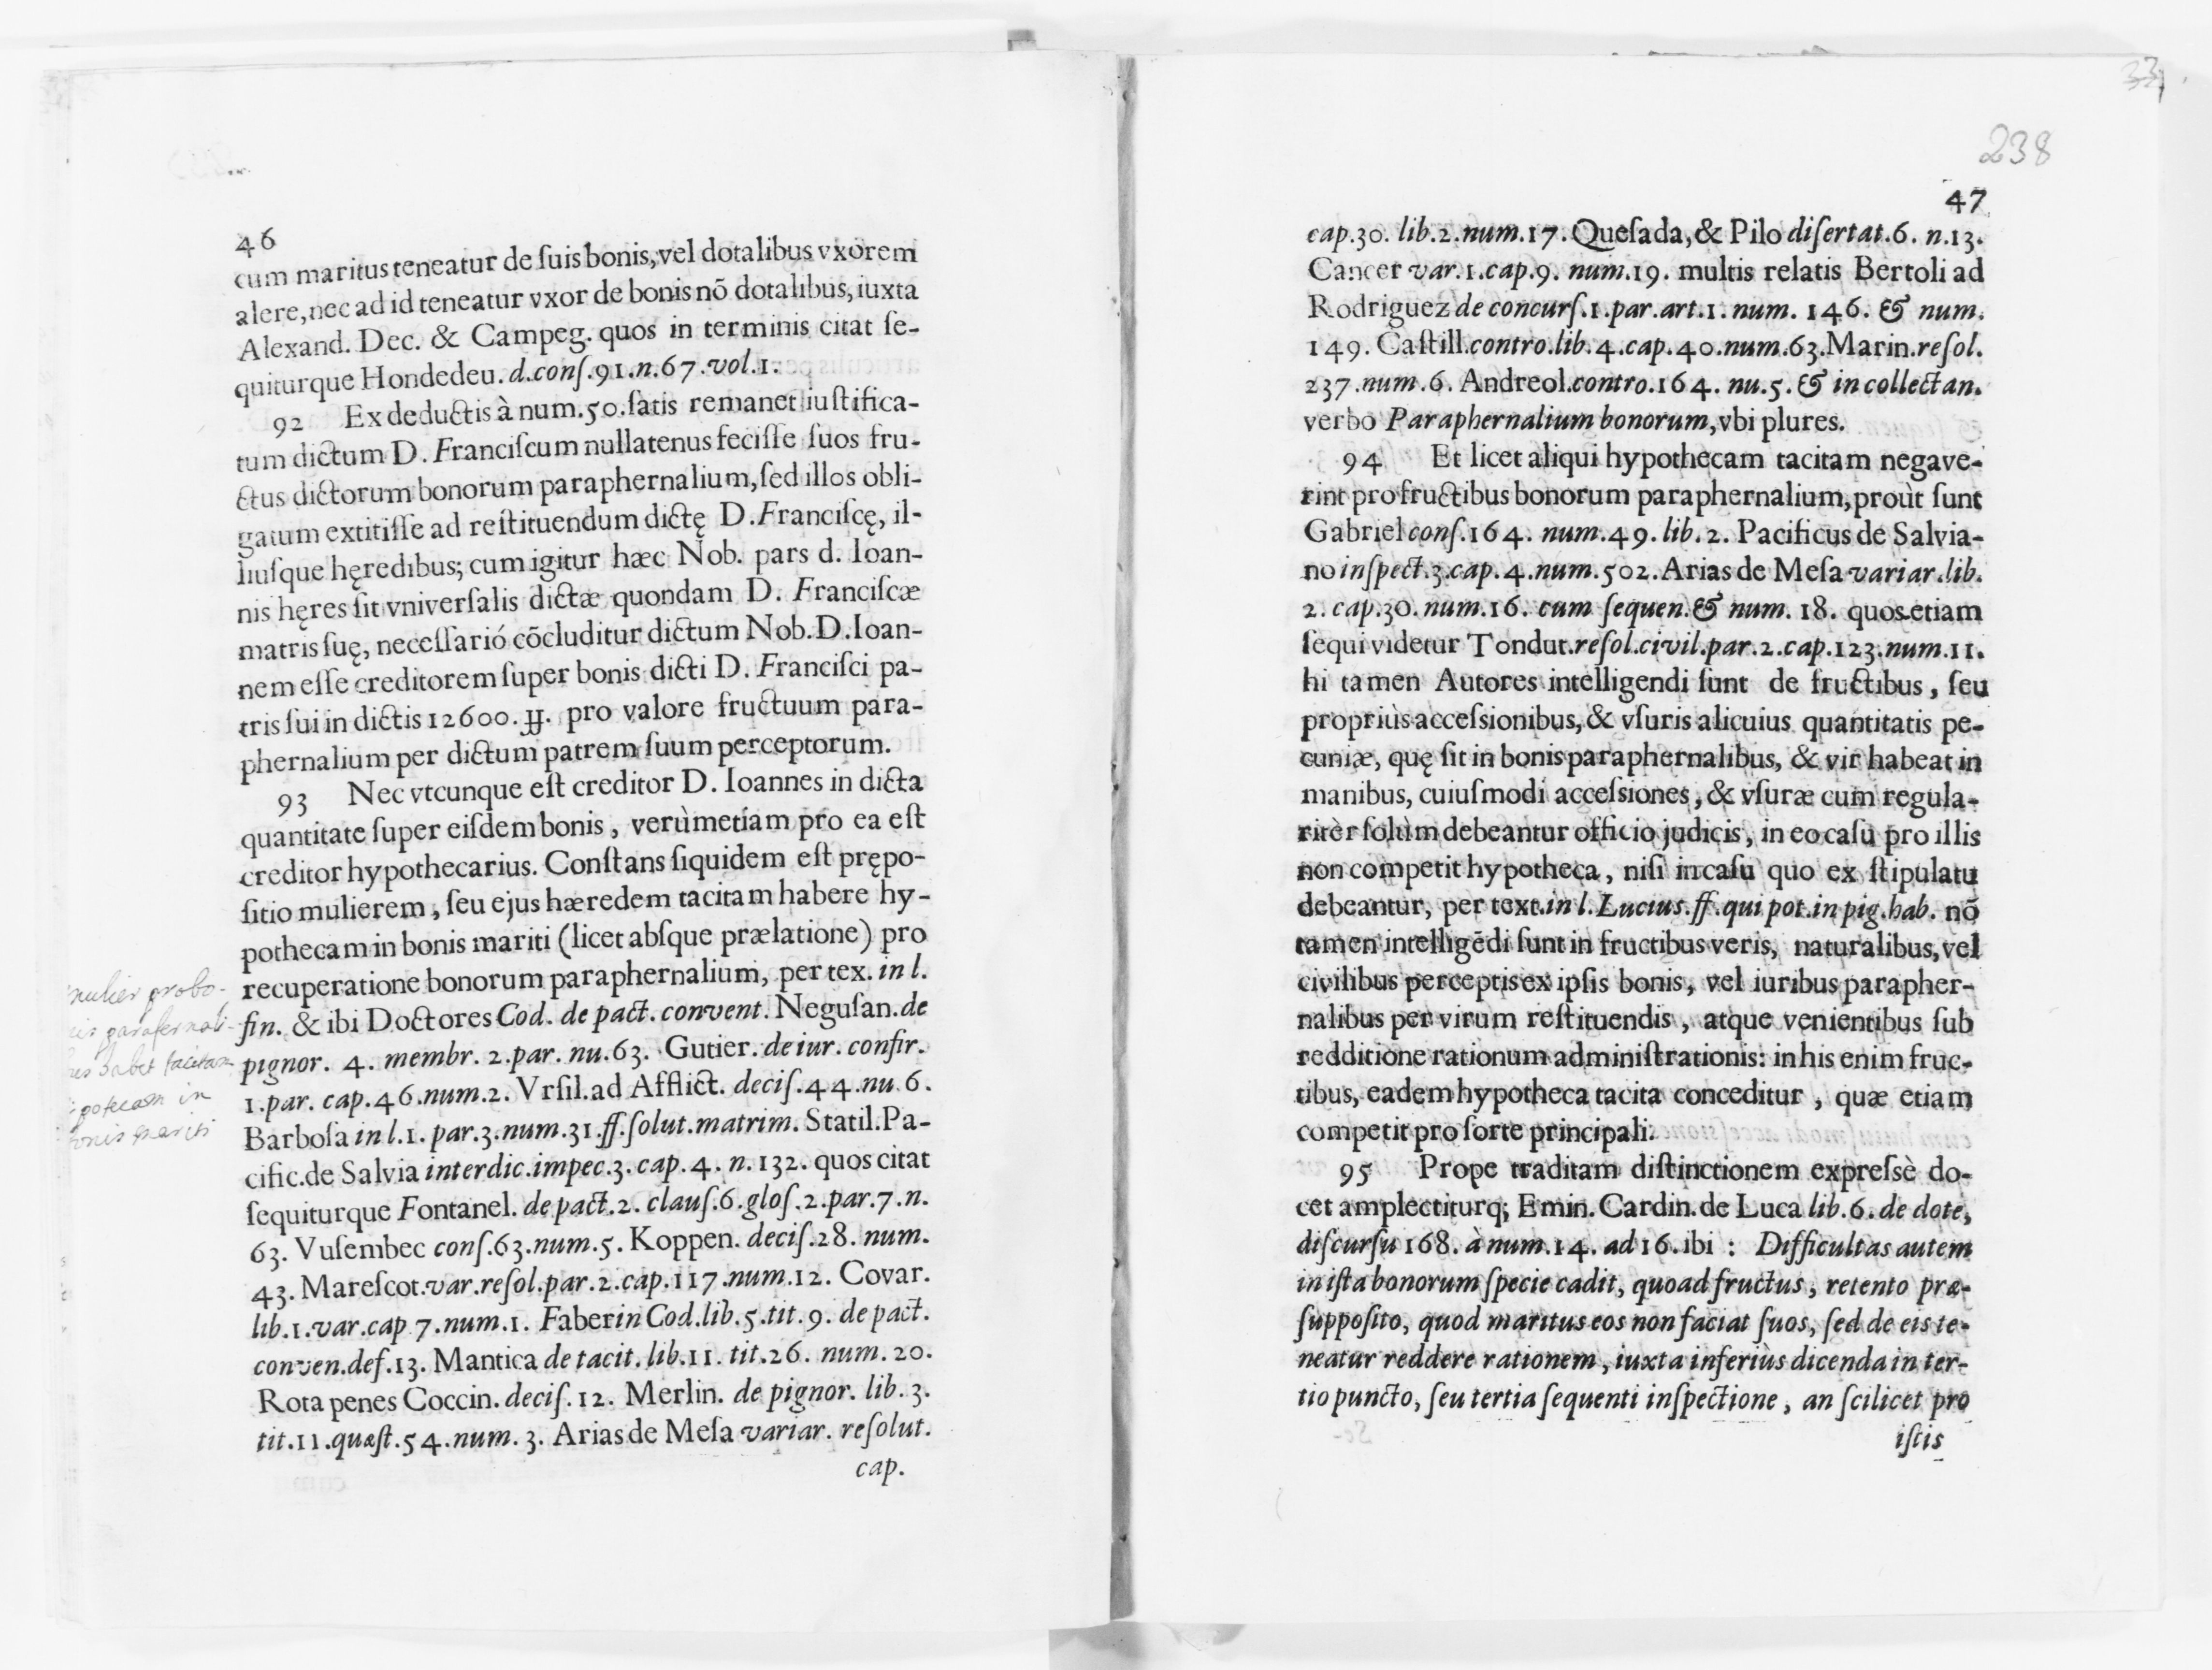 46
cum maritus teneatur de ſuis bonis, vel dotalibus vxorem
alere, nec ad id teneatur vxor de bonis nō dotalibus, iuxta
Alexand. Dec. & Campeg. quos in terminis citat ſe-
quiturque Hondedeu. d. conſ. 91. n. 67. vol. 1.
92 Ex deductis à num. 50. ſatis remanet iuſtifica-
tum dictum D. Franciſcum nullatenus feciſſe ſuos fru-
ctus dictorum bonorum paraphernalium, ſed illos obli-
gatum extitiſſe ad reſtituendum dictę D. Franciſcę, il-
liuſque hęredibus; cum igitur hæc Nob. pars d. Ioan-
nis hęres ſit vniverſalis dictæ quondam D. Franciſcæ
matris ſuę, neceſſarió cōcluditur dictum Nob. D. Ioan-
nem eſſe creditorem ſuper bonis dicti D. Franciſci pa-
tris ſui in dictis 12600. ℔. pro valore fructuum para-
phernalium per dictum patrem ſuum perceptorum.
93 Nec vtcunque eſt creditor D. Ioannes in dicta
quantitate ſuper eiſdem bonis, verùm etiám pro ea eſt
creditor hypothecarius. Conſtans ſiquidem eſt prępo-
ſitio mulierem, ſeu ejus hæredem tacitam habere hy-
pothecam in bonis mariti (licet abſque prælatione) pro
recuperatione bonorum paraphernalium, per tex. in l.
fin. & ibi Doctores Cod. de pact. convent. Neguſan. de
pignor. 4. membr. 2. par. nu. 63. Gutier. de iur. confir.
1. par. cap. 46. num. 2. Vrſil. ad Afflict. deciſ. 44. nu. 6.
Barboſa in l. 1. par. 3. num. 31. ff. ſolut. matrim. Statil. Pa-
cific. de Salvia interdic. impec. 3. cap. 4. n. 132. quos citat
ſequiturque Fontanel. de pact. 2. clauſ. 6. gloſ. 2. par. 7. n.
63. Vuſembec conſ. 63. num. 5. Koppen. deciſ. 28. num.
43. Mareſcot. var. reſol. par. 2. cap. 117. num. 12. Covar.
lib. 1. var. cap 7. num. 1. Faber in Cod. lib. 5. tit. 9. de pact.
conven. def. 13. Mantica de tacit. lib. 11. tit. 26. num. 20.
Rota penes Coccin. deciſ. 12. Merlin. de pignor. lib. 3.
tit. 11. quæſt. 54. num. 3. Arias de Meſa variar. reſolut.
cap.
mulier probo-
parafernali-
habet tacitam
in
mariti
238
47
cap. 30. lib. 2. num. 17. Queſada, & Pilo diſertat. 6. n. 13.
Cancer var. 1. cap. 9. num. 19. multis relatis Bertoli ad
Rodriguez de concurſ. 1. par. art. 1. num. 146. & num.
149. Caſtill. contro. lib. 4. cap. 40. num. 63. Marin. reſol.
237. num. 6. Andreol. contro. 164. nu. 5. & in collectan.
verbo Paraphernalium bonorum, vbi plures.
94 Et licet aliqui hypothecam tacitam negave-
rint pro fructibus bonorum paraphernalium, proùt ſunt
Gabriel conſ. 164. num. 49. lib. 2. Pacificus de Salvia-
no inſpect. 3. cap. 4. num. 502. Arias de Meſa variar. lib.
2. cap. 30. num. 16. cum ſequen. & num. 18. quos etiam
ſequi videtur Tondut. reſol. civil. par. 2. cap. 123. num. 11.
hi tamen Autores intelligendi ſunt de fructibus, ſeu
propriùs acceſsionibus, & vſuris alicuius quantitatis pe-
cuniæ, quę ſit in bonis paraphernalibus, & vir habeat in
manibus, cuiuſmodi acceſsiones, & vſuræ cum regula-
ritèr ſolùm debeantur officio judicis, in eo caſu pro illis
non competit hypotheca, niſi in caſu quo ex ſtipulatu
debeantur, per text. in l. Lucius. ff. qui pot. in pig. hab. nō
tamen intelligēdi ſunt in fructibus veris, naturalibus, vel
civilibus perceptis ex ipſis bonis, vel iuribus parapher-
nalibus per virum reſtituendis, atque venientibus ſub
redditione rationum adminiſtrationis: in his enim fruc-
tibus, eadem hypotheca tacita conceditur, quæ etiam
competit pro ſorte principali.
95 Prope traditam diſtinctionem expreſsè do-
cet amplectiturq; Emin. Cardin. de Luca lib. 6. de dote,
diſcurſu 168. à num. 14. ad 16. ibi : Difficultas autem
in iſta bonorum ſpecie cadit, quoad fructus, retento præ-
ſuppoſito, quod maritus eos non faciat ſuos, ſed de eis te-
neatur reddere rationem, iuxta inferiùs dicenda in ter-
tio puncto, ſeu tertia ſequenti inſpectione, an ſcilicet pro
iſtis